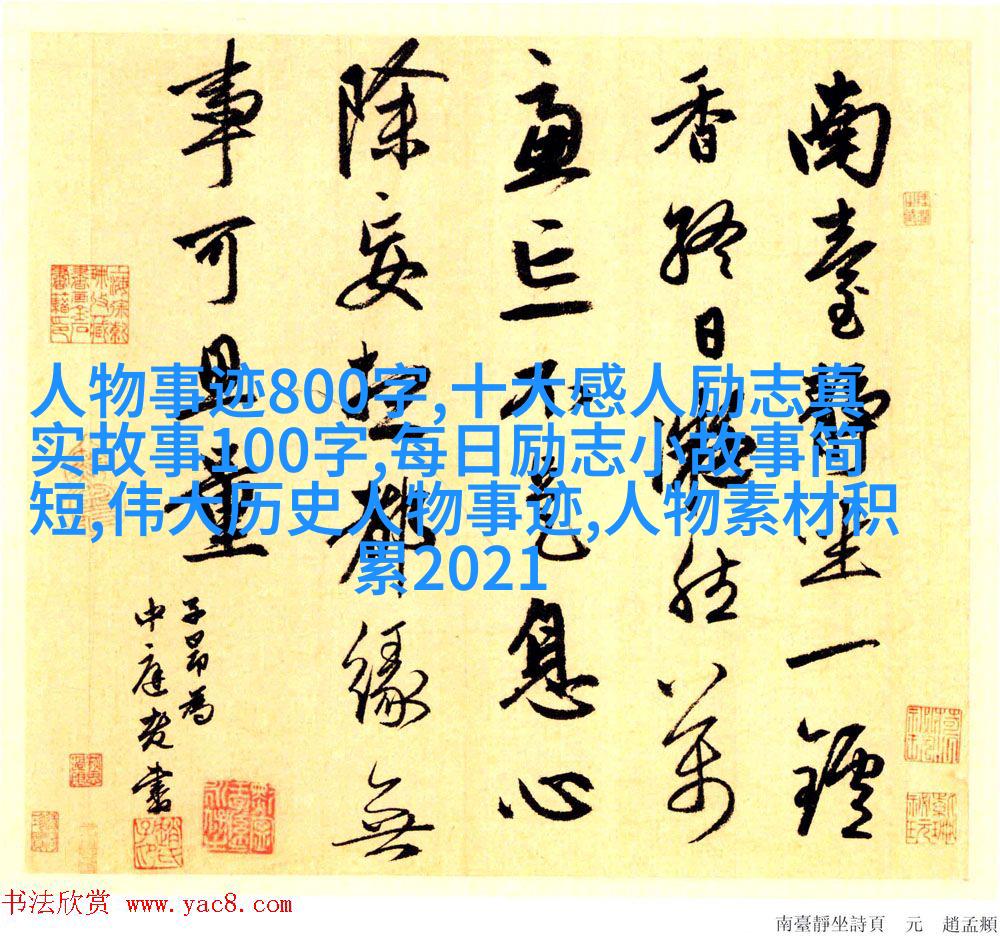 南臺靜坐一鑪
香終日凝然萬
慮亡不是息心
除妄想都緣無
事可思量
子昂為
中庭老書
人物事迹800字,十大感人励志真
实故事100字,每日励志小故事简
短,伟大历史人物事迹,人物素材积
累2021
书法欣赏 www.yac8.com
南臺靜坐詩頁 元 趙孟頫